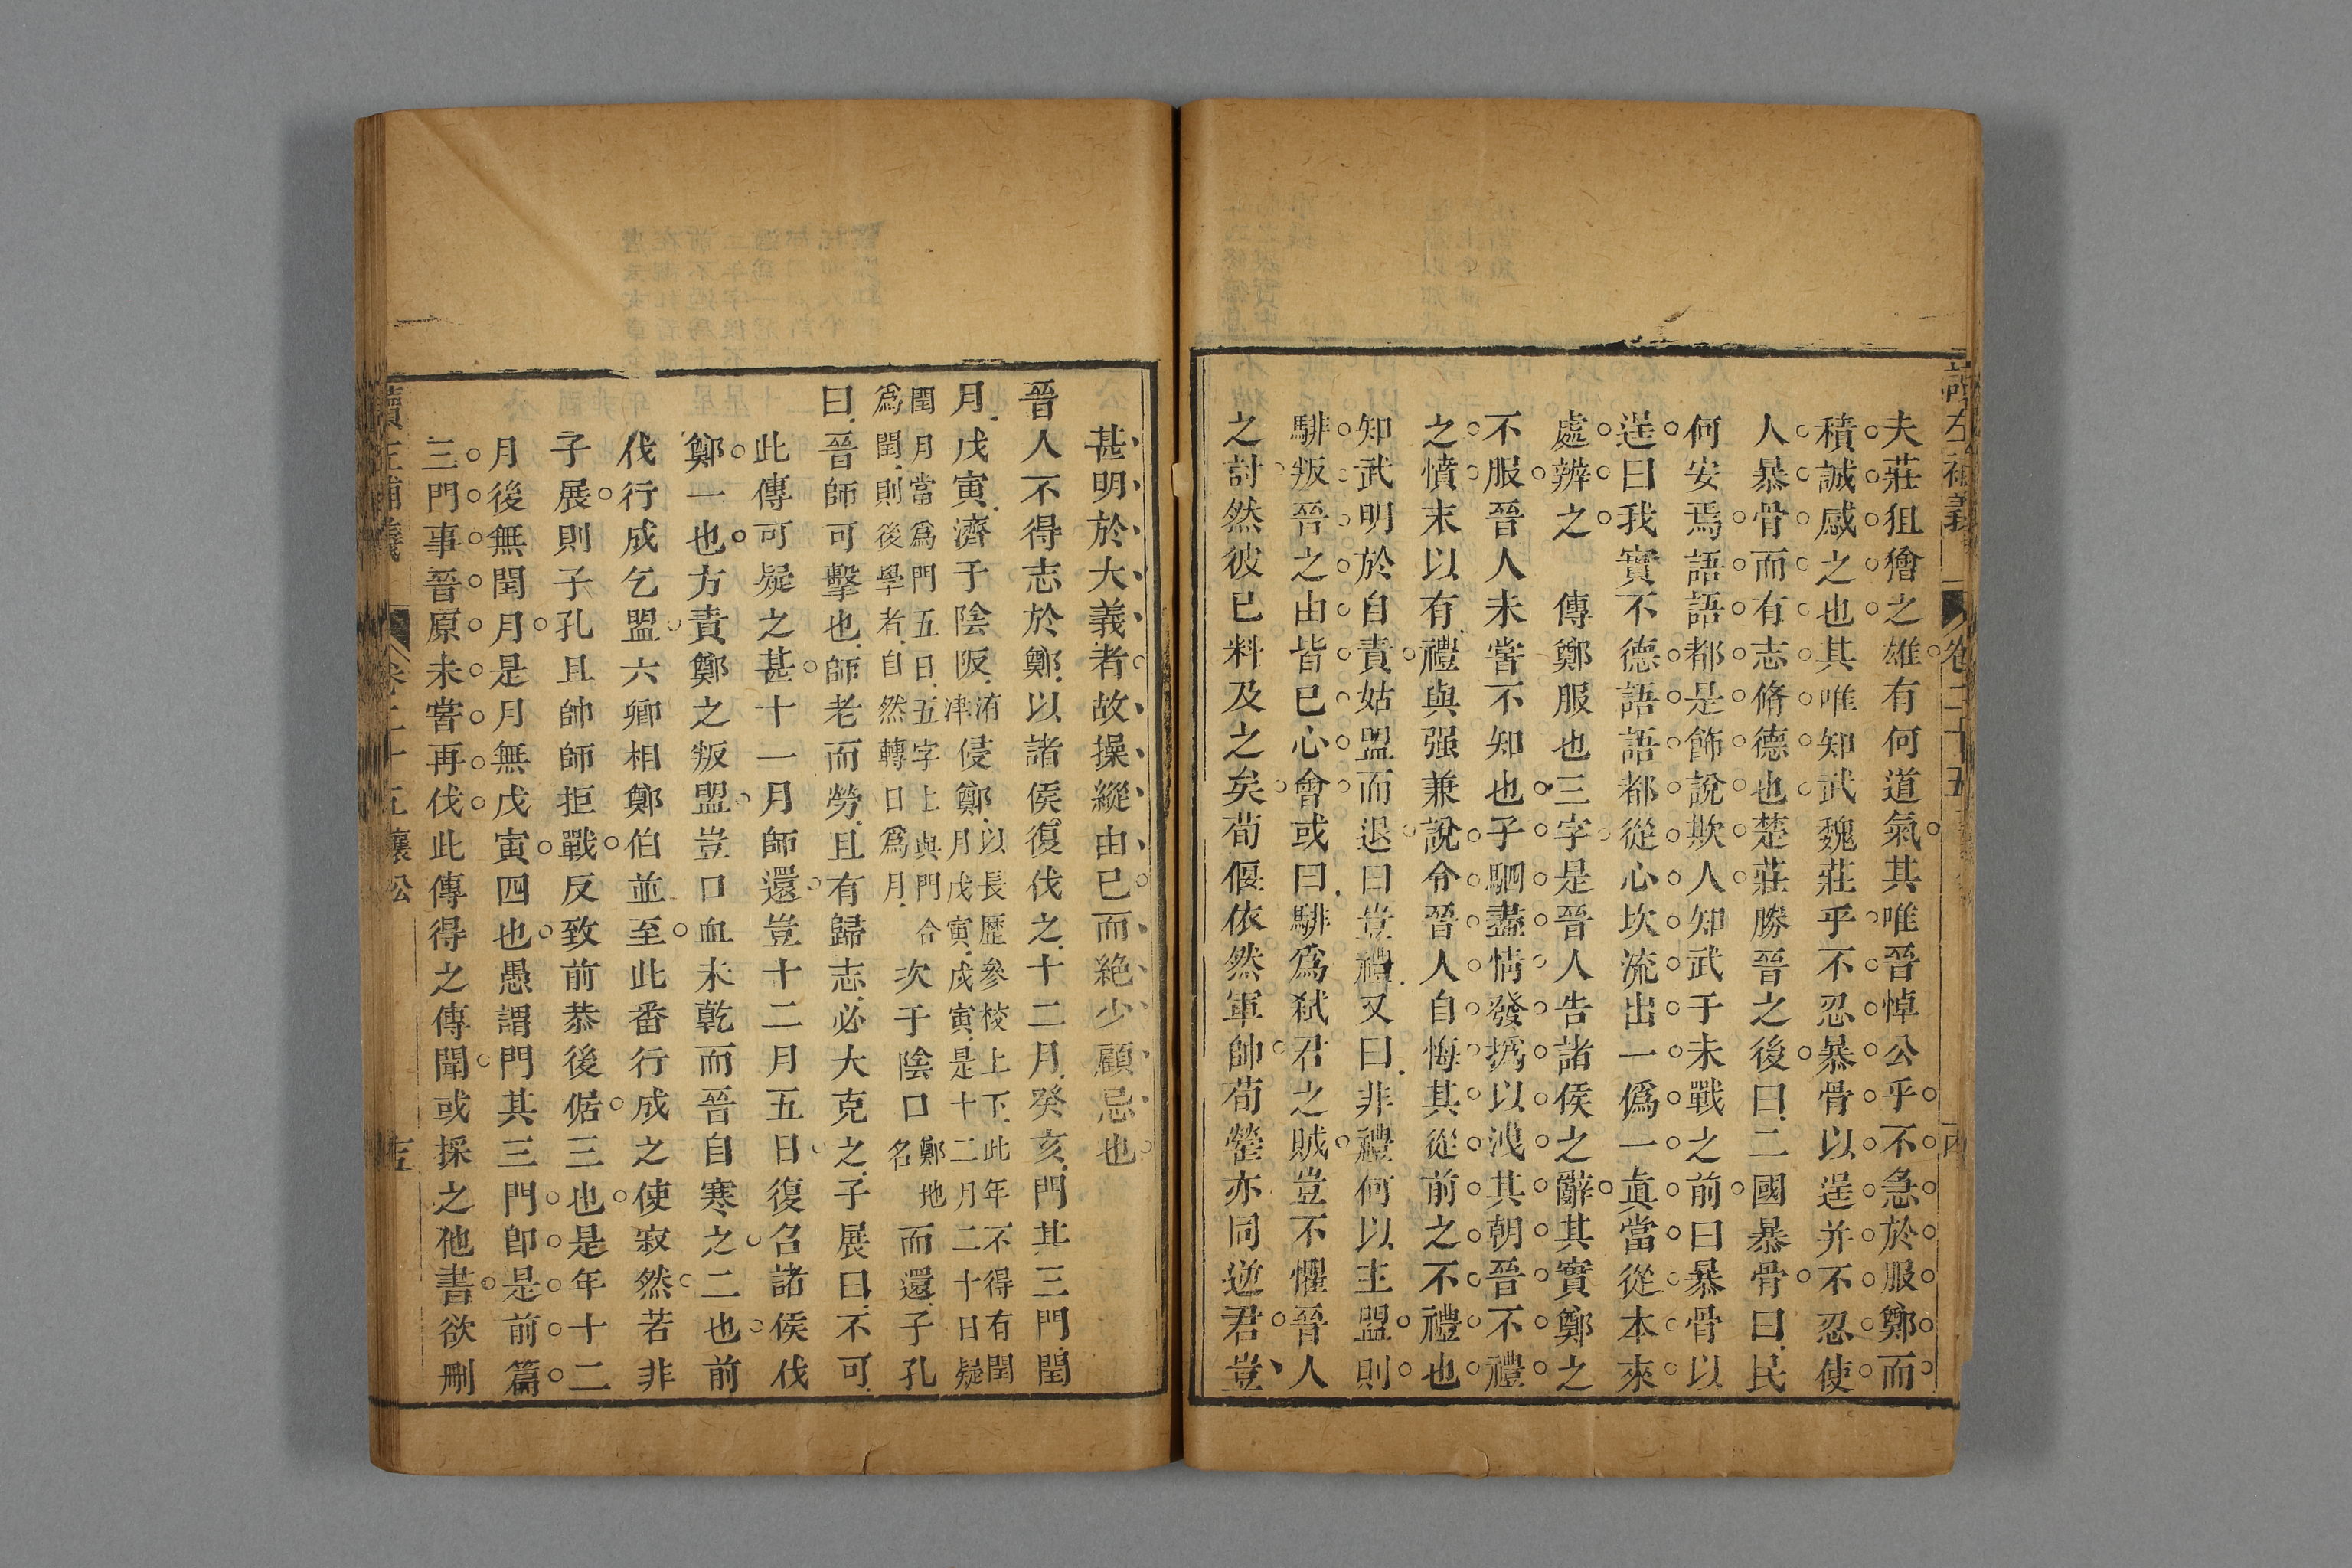 讀左補義 卷二十五
夫莊狙獪之雄有何道氣其唯晉悼公乎不急於服鄭而
積誠感之也其唯知武魏莊乎不忍暴骨以逞并不忍使
人暴骨而有志脩德也楚莊勝晉之後曰二國暴骨曰民
何安焉語語都是飾說欺人知武于未戰之前曰暴骨以
逞曰我實不德語語都從心坎流出一僞一眞當從本來
處辨之　傳鄭服也三字是晉人告諸侯之辭其實鄭之
不服晉人未嘗不知也子駟盡情發撝以洩其朝晉不禮
之憤末以有禮與强兼說令晉人自悔其從前之不禮也
知武明於自責姑盟而退曰豈禮又曰非禮何以主盟則
騑叛晉之由皆已心會或曰騑爲弒君之賊豈不懼晉人
之討然彼已料及之矣荀偃依然軍帥荀罃亦同逆君豈
甚明於大義者故操縱由已而絶少顧忌也
晉人不得志於鄭以諸侯復伐之十二月癸亥門其三門閏
月戊寅濟于陰阪洧津侵鄭以長歷參校上下此年不得有閏月戊寅戊寅是十二月二十日疑
閏月當爲門五日五字上與門合爲閏則後學者自然轉日爲月次于陰口鄭地名而還子孔
曰晉師可擊也師老而勞且有歸志必大克之子展曰不可
此傳可疑之甚十一月師還豈十二月五日復召諸侯伐
鄭一也方責鄭之叛盟豈口血未乾而晉自寒之二也前
伐行成乞盟六卿相鄭伯並至此番行成之使寂然若非
子展則子孔且帥師拒戰反致前恭後倨三也是年十二
月後無閏月是月無戊寅四也愚謂門其三門卽是前篇
三門事晉原未嘗再伐此傳得之傳聞或採之他書欲刪
讀左補義 卷二十五襄公